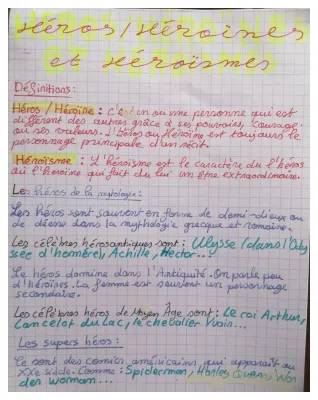 Héros / Héroïnes
et Héroïsmes
Définitions:
Héros / Héroïne : C'est un ou une personne qui est
différent des autres grâce à ses pouvoirs, courage
ou ses valeurs. L'Héros ou Héroïne est toujours le
personnage principale d'un récit.
Héroïsme : L'héroïsme est le caractère du l'héros
ou l'héroïne qui fait du lui un être extraordinaire.
Les héros de la mythologie:
Les héros sont souvent en forme de demi-dieux ou
de déesse dans la mythologie grecque et romaine.
Les célèbres héros antiques sont: Ulysse (dans l'Ody
ssée d'homère), Achille, Hector...
Le héros domine dans l'Antiquité. On parle peu
d'héroïnes. La femme est souvent un personnage
secondaire.
Les célèbres héros de Moyen Âge sont: Le roi Arthur,
Lancelot du Lac, le chevalier Yvain...
Les supers héros:
Ce sont des comics américains qui apparaît au
XXe siècle. Comme: Spiderman, Won
der womam....